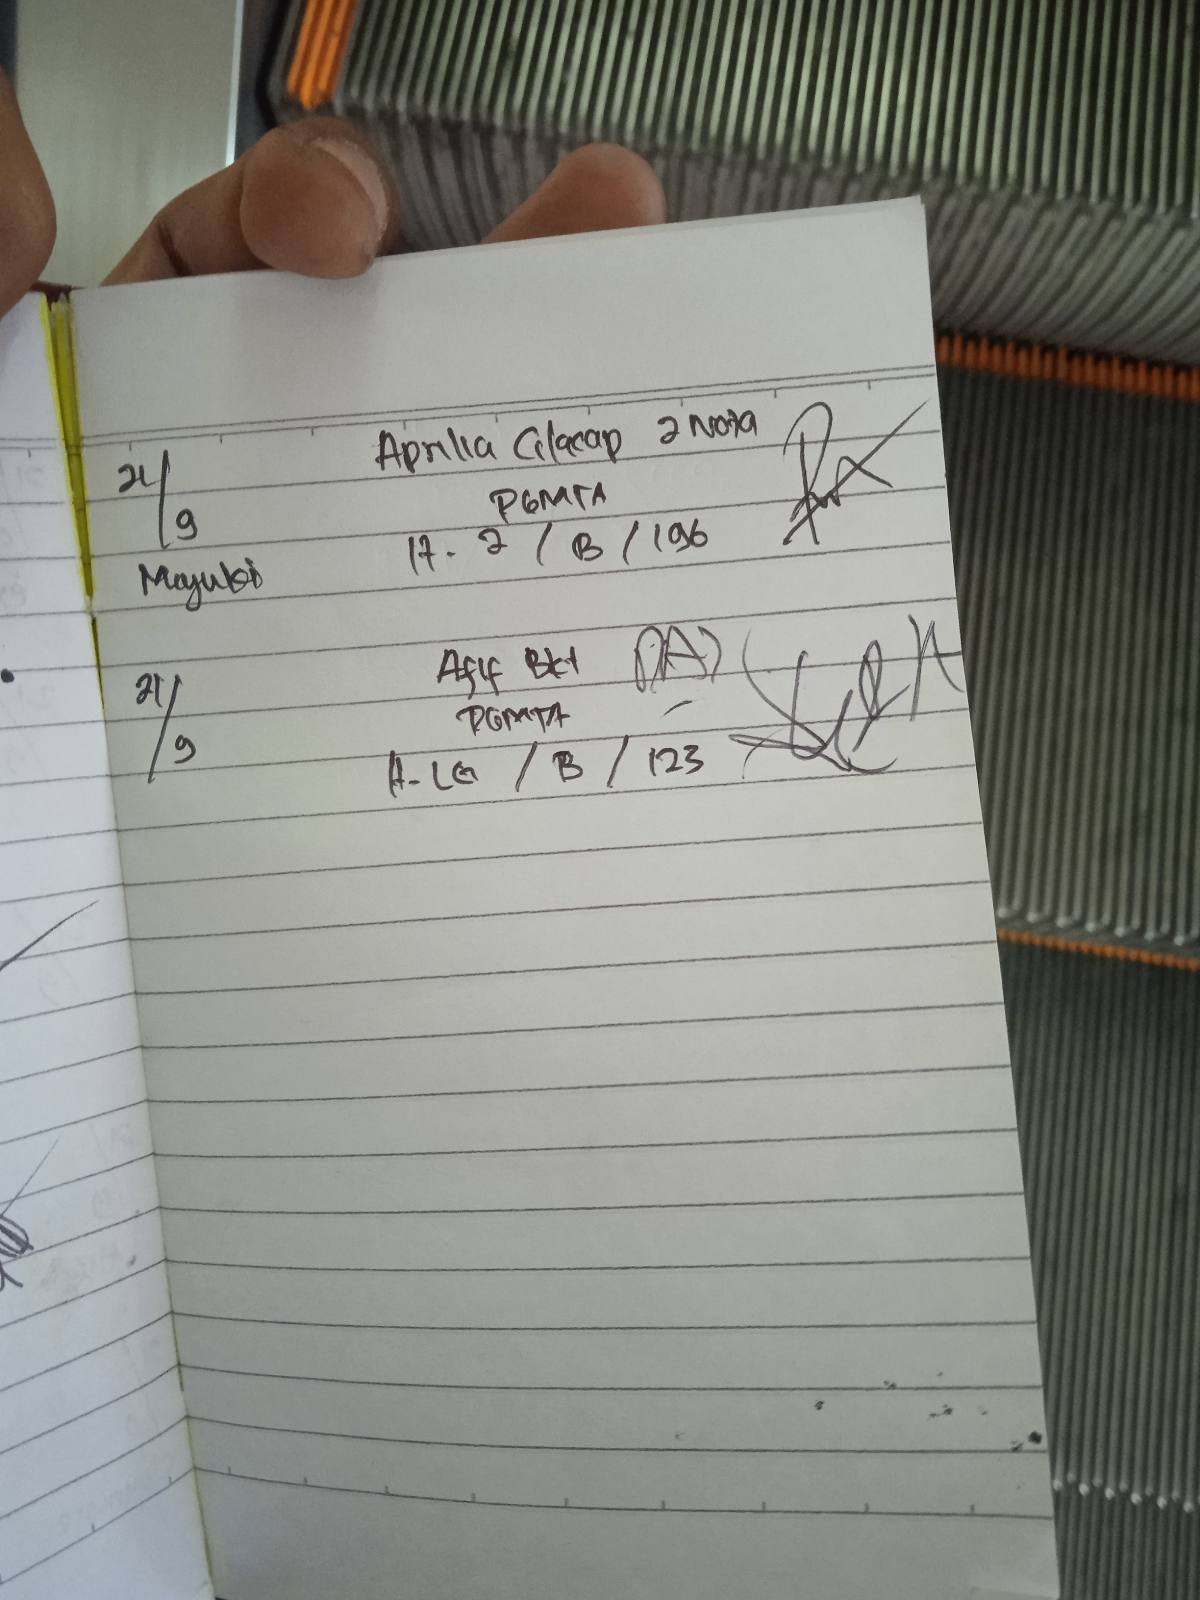 21/9 Aprilia Cilacap 2 Nota
PGMTA
Mayuki
17-2 / B / 196
21/9 Afif Bkt
PGMTA
A-LG / B / 123